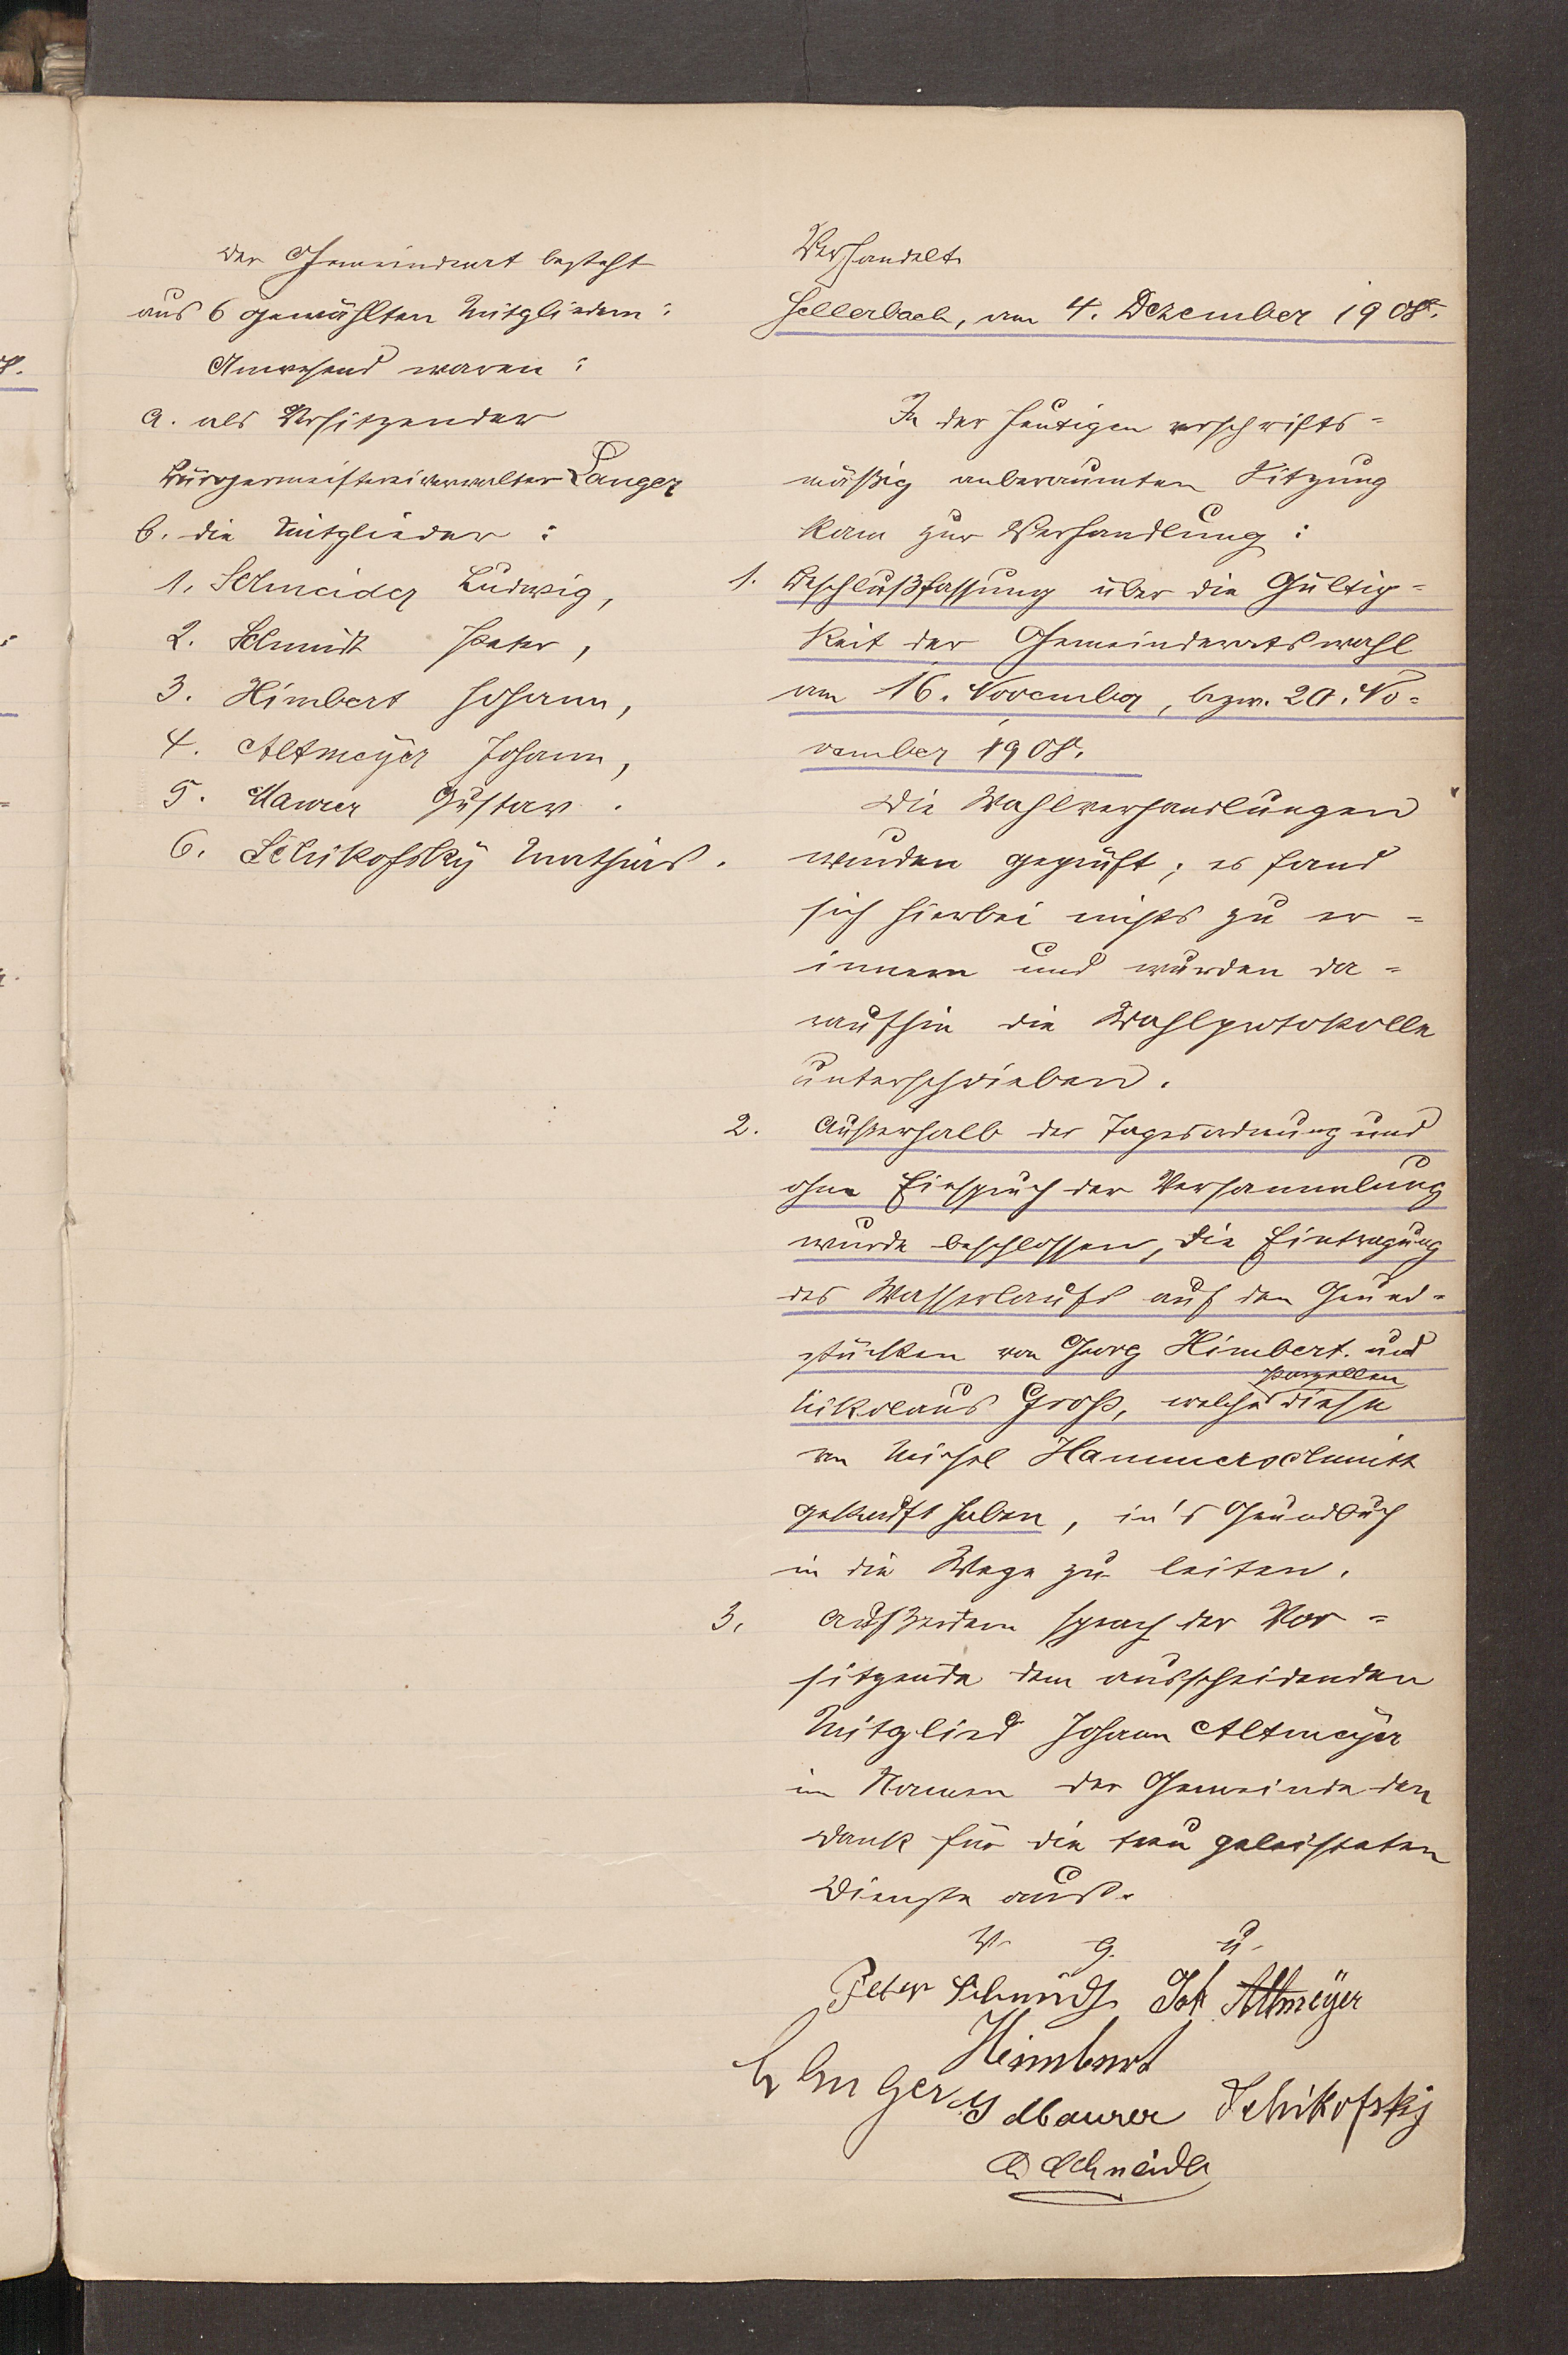 Der Gemeinderat besteht
aus 6 gewählten Mitgliedern:
Anwesend waren:
a. als Vorsitzender
Bürgermeistereiverwalter Langer
b. die Mitglieder:
1. Schneider Ludwig,
2. Schmidt Peter,
3. Himbert Johann,
4. Altmeÿer Johann,
5. Maurer Gustav.
6. Schikofskÿ Mathias.
Verhandelt
Hellerbach, am 4. Dezember 1908.
In der heutigen vorschrifts=
mäßig anberaumten Sitzung
kam zur Verhandlung:
1. Beschlußfassung über die Gültig=
keit der Gemeinderatswahl
am 16. November, bzw. 20. No=
vember 1908.
Die Wahlverhandlungen
wurden geprüft; es fand
sich hierbei nichts zu er=
innern und wurden da=
raufhin die Wahlprotokolle
unterschrieben.
2. Außerhalb der Tagesordnung und
ohne Einspruch der Versammlung
wurde beschlossen, die Eintragung
des Wasserlaufs auf den Grund=
stücken von Georg Himbert und
Parzellen
Nikolaus Groß, welche diese
von Michel Hammerschmitt
gekauft haben, in's Grundbuch
in die Wege zu leiten.
3. Außerdem sprach der Vor=
sitzende dem ausscheidenden
Mitglied Johann Altmeÿer
im Namen der Gemeinde den
Dank für die treu geleisteten
Dienste aus.
V. g. u.
Peter Schmidt Joh Altmeÿer
Himbert
Langer
G Maurer Schikofskÿ
L Schneider